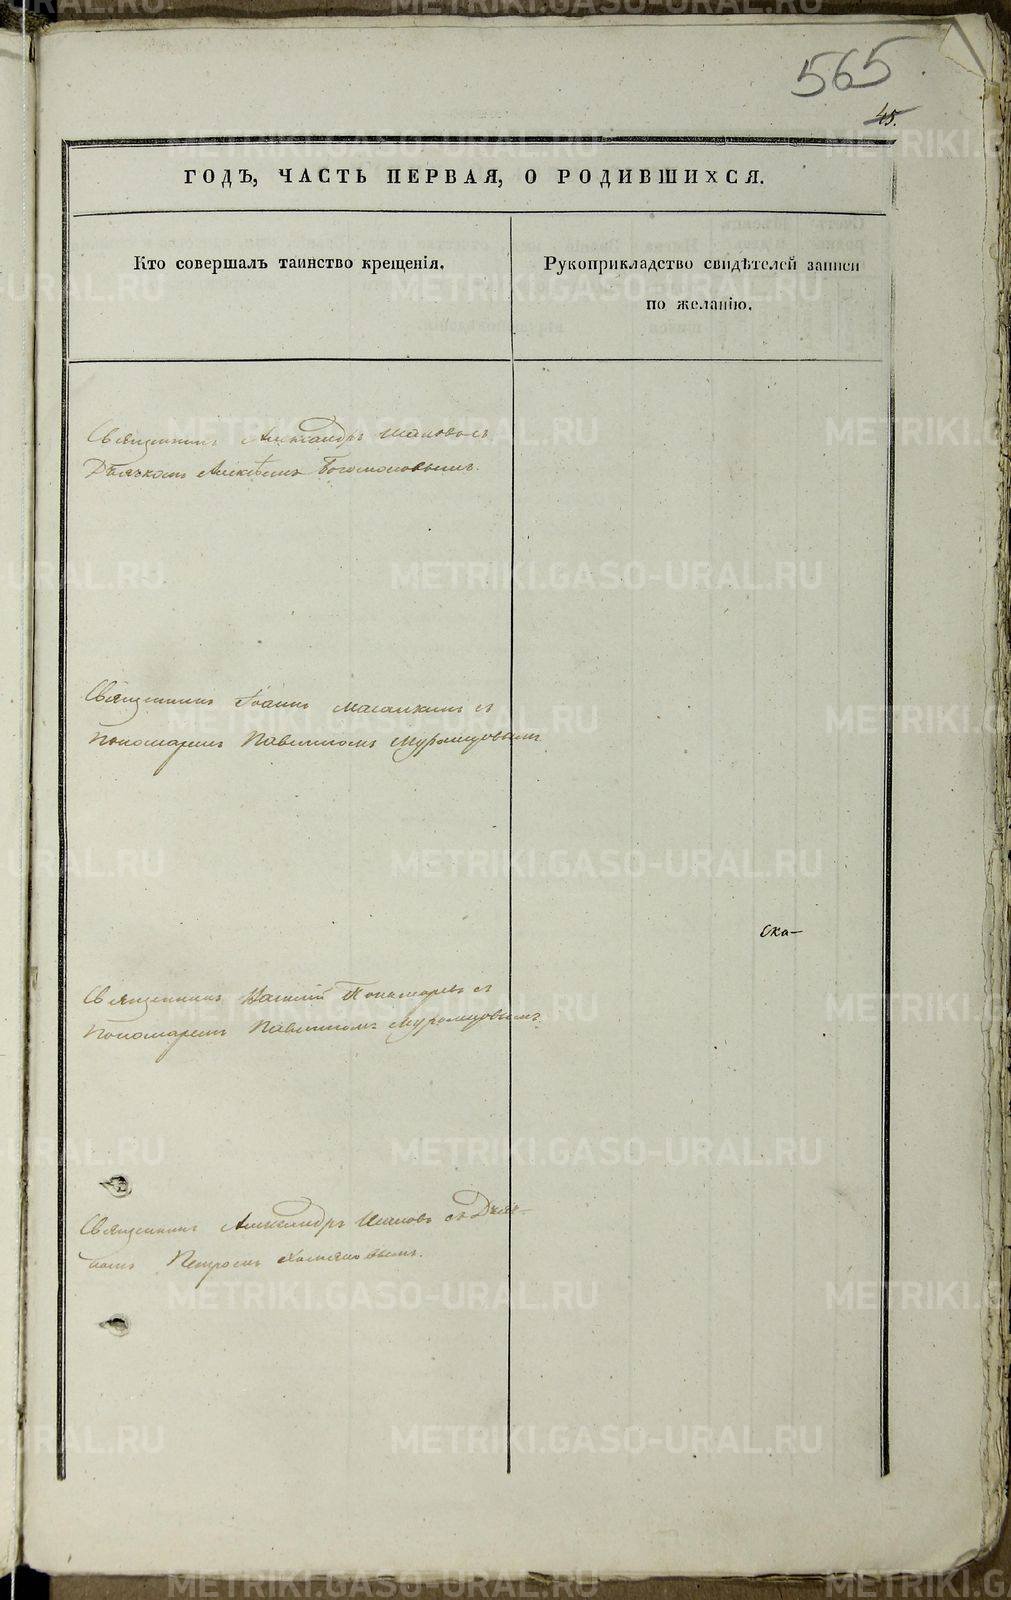 565
45.
ГОДЪ, ЧАСТЬ ПЕРВАЯ, О РОДИВШИХСЯ.
Кто совершалъ таинство крещенія.
Рукоприкладство свидѣтелей записи
по желанію.
Священникъ Александръ съ
Дьячкомъ Алексѣемъ Богомоловымъ.
Священникъ Іоаннъ съ
Пономаремъ Павлиномъ Муромцовымъ
Ска-
Священникъ Василій Пономаревъ съ
Пономаремъ Павлиномъ Муромцовымъ.
Священникъ Александръ съ Дьяч-
комъ Петромъ
METRIKI.GASO-URAL.RU